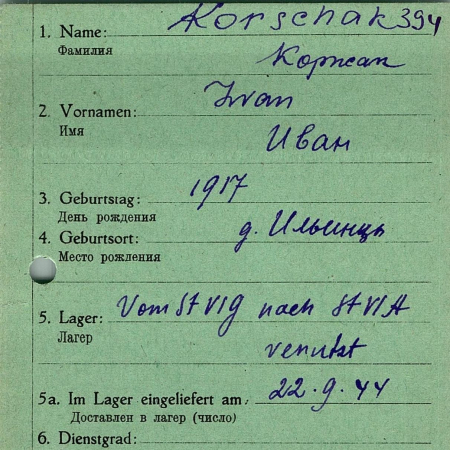 1. Name: Korschak 394
Фамилия Коржак
2. Vornamen: Ivan
Имя Иван
3. Geburtstag: 1917
День рождения
4. Geburtsort: д. Ильинцы
Место рождения
5. Lager: Vom St VIG nach St VIA
Лагер
5a. Im Lager eingeliefert am: 22.9.44
Доставлен в лагер (число)
6. Dienstgrad: